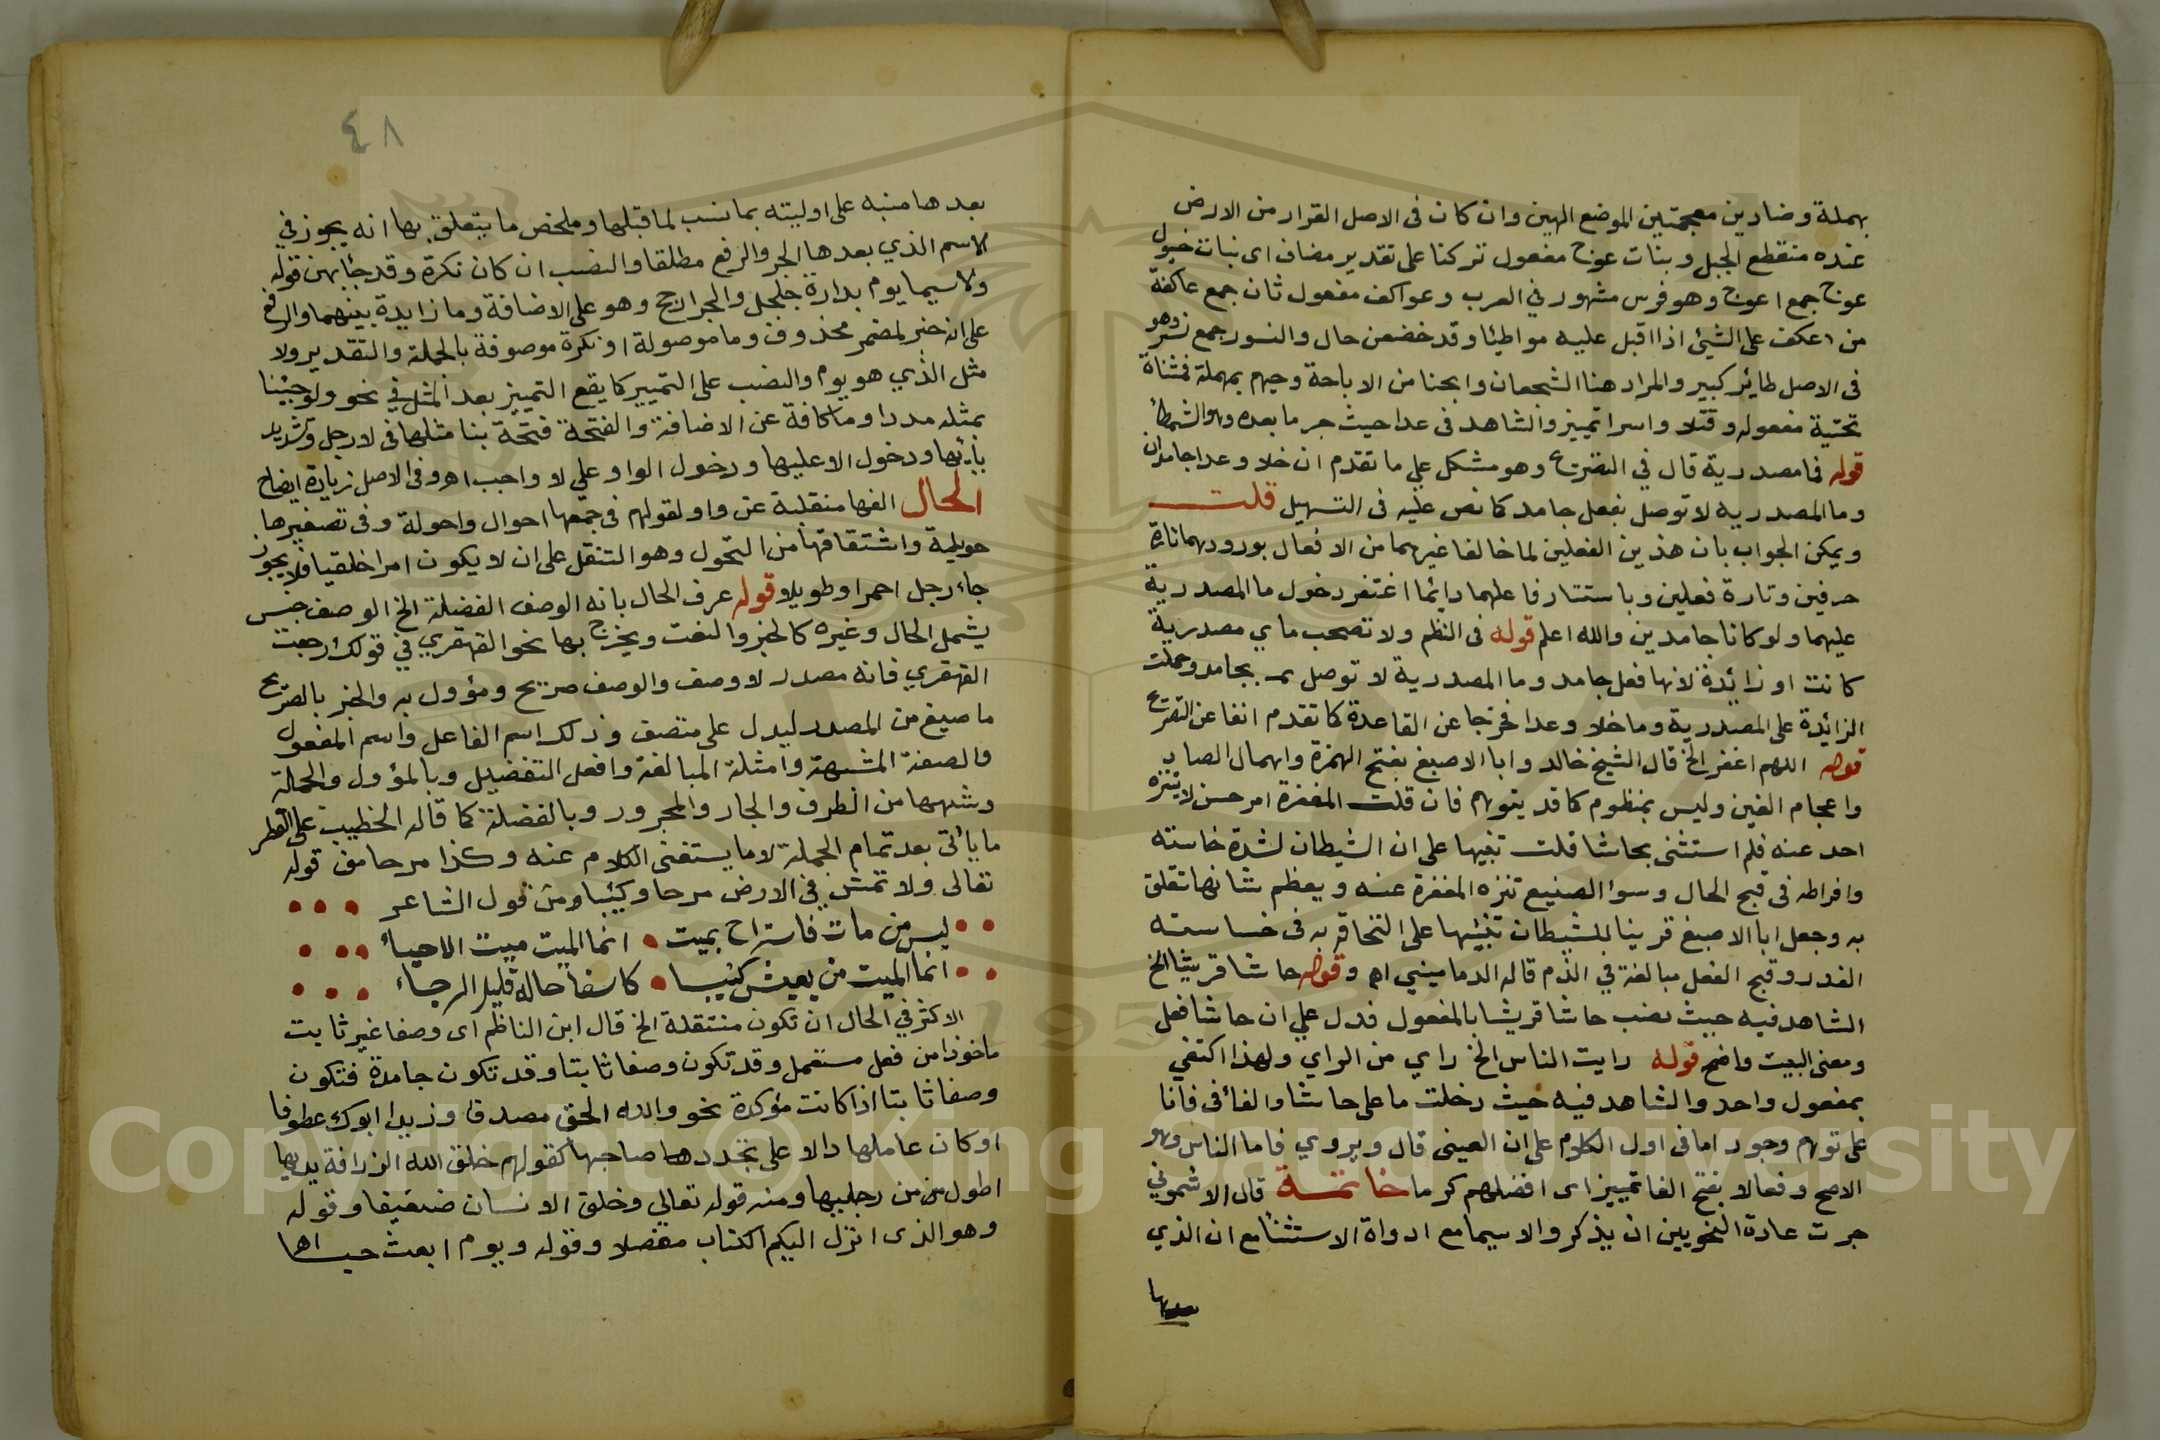 بهملة وضادين معجمتين الموضع الهين وان كان فى الاصل القرار من الارض
عنده منقطع الجبل وبنات عوج مفعول تركنا على تقدير مضاف اى بنات خيول
عوج جمع اعوج وهو فرس مشهور في العرب وعواكف مفعول ثان جمع عاكفة
من عكف على الشيئ اذا اقبل عليه مواظبا وقد خضعن حال والنسور جمع نسر وهو
فى الاصل طائر كبير والمراد هنا الشجعان وابحنا من الاباحة وحيهم بمهملة فمثناة
تحتية مفعوله وقتلا واسرا تمييز والشاهد فى عدا حيث جر ما بعده وهو الشمطاء
قوله فما مصدرية قال في التصريح وهو مشكل على ما تقدم ان خلا وعدا جامدان
وما المصدرية لا توصل بفعل جامد كما نص عليه فى التسهيل قلت
ويمكن الجواب بان هذين الفعلين لما خالفا غيرهما من الافعال بورودهما تارة
حرفين وتارة فعلين وباستتار فاعلهما دائما اغتفر دخول ما المصدرية
عليهما ولو كانا جامدين والله اعلم قوله فى النظم ولا تصحب ما ي مصدرية
كانت او زائدة لانها فعل جامد وما المصدرية لا توصل بجامد وحملت
الزائدة على المصدرية وما خلا وعدا فخرجا عن القاعدة كما تقدم انفا عن التصريح
قوله اللهم اغفر الخ قال الشيخ خالد وابا الاصبغ بفتح الهمزة واهمال الصاد
واعجام الغين وليس بمنظوم كما قد يتوهم فان قلت المغفرة امر حسن لا يتنزه
احد عنه فلم استثنى بحاشا قلت تنبيها على ان الشيطان لشدة خاسته
وافراطه فى قبح الحال وسوا الصنيع تنزه المغفرة عنه ويعظم شانها تعلق
به وجعل ابا الاصبغ قرينا للشيطان تنبيها على التحاقه به فى خساسته
القدر وقبح الفعل مبالغة في الذم قاله الدماميني اه وقوله حاشا قريشا الخ
الشاهد فيه حيث نصب حاشا قريشا بالمفعول فدل على ان حاشا فعل
ومعنى البيت واضح قوله رايت الناس الخ راي من الراي ولهذا اكتفي
بمفعول واحد والشاهد فيه حيث دخلت ما على حاشا والفا في فانا
على توهم وجود اما فى اول الكلام على ان العينى قال ويروي فاما الناس وهو
الاصح وفعالا بفتح الفا تمييز اى افضلهم كرما خاتمة قال الاشموني
جرت عادة النحويين ان يذكروا لاسيما مع ادواة الاستثناء مع ان الذي
بعدها
٤٨
بعدها منبه على اوليته بما نسب لما قبلها وملخص ما يتعلق بها انه يجوز في
الاسم الذي بعدها الجر والرفع مطلقا والنصب ان كان نكرة وقد جئ بهن قوله
ولاسيما يوم بدارة جلجل والجر ارجح وهو على الاضافة وما زايدة بينهما والرفع
على انه خبر لمضمر محذوف وما موصولة او نكرة موصوفة بالجملة والتقدير ولا
مثل الذي هو يوم والنصب على التمييز كما يقع التمييز بعد المثل في نحو ولو جئنا
بمثله مددا وما كافة عن الاضافة والفتحة فتحة بنا مثلها فى لا رجل وتشديد
يائها ودخول لا عليها ودخول الواو على لا واجب اه وفي الاصل زيادة ايضاح
الحال الفها منقلبة عن واو لقولهم فى جمعها احوال واحولة وفى تصغيرها
حويلة واشتقاقها من التحول وهو التنقل على ان لا يكون امرا خلقيا فلا يجوز
جاء رجل احمرا وطويلا وقوله عرف الحال بانه الوصف الفضلة الخ الوصف جنس
يشمل الحال وغيره كالخبر والنعت ويخرج بها نحو القهقري في قولك رجعت
القهقري فانه مصدر لا وصف والوصف صريح ومؤول به والخبر بالصريح
ما صيغ من المصدر ليدل على متصف وذلك اسم الفاعل واسم المفعول
والصفة المشبهة وامثلة المبالغة وافعل التفضيل وبالمؤول والجملة
وشبهها من الظرف والجار والمجرور وبالفضلة كما قاله الخطيب على القطر
ما ياتى بعد تمام الجملة لا ما يستغنى الكلام عنه وكذا مرحا من قوله
تعالى ولا تمش في الارض مرحا وكئيبا ومن قول الشاعر
ليس من مات فاستراح بميت انما الميت ميت الاحياء
انما الميت من يعيش كئيبا كاسفا حاله قليل الرجاء
الاكثر في الحال ان تكون منتقلة الخ قال ابن الناظم اى وصفا غير ثابت
ماخوذا من فعل مستعمل وقد تكون وصفا ثابتا وقد تكون جامدة فتكون
وصفا ثابتا اذا كانت مؤكدة نحو والله الحق مصدقا وزيدا ابوك عطوفا
او كان عاملها دالا على تجدد صاحبها كقولهم خلق الله الزرافة يديها
اطول من رجليها ومنه قوله تعالى وخلق الانسان ضعيفا وقوله
وهو الذى انزل اليكم الكتاب مفصلا وقوله ويوم ابعث حيا اها
Copyright © King Saud University
1957